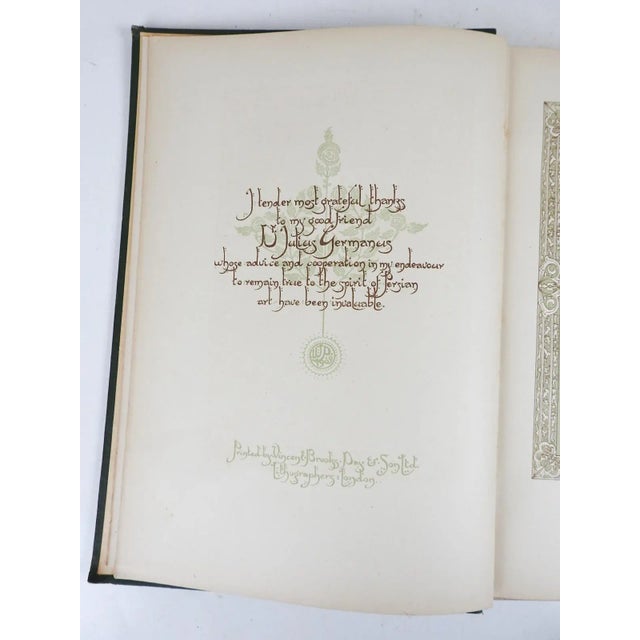 I tender most grateful thanks
to my good friend
Dr Julius Germanus
whose advice and cooperation in my endeavour
to remain true to the spirit of Persian
art have been invaluable.
Printed by Vincent Brooks, Day & Son Ltd.
Lithographers London.